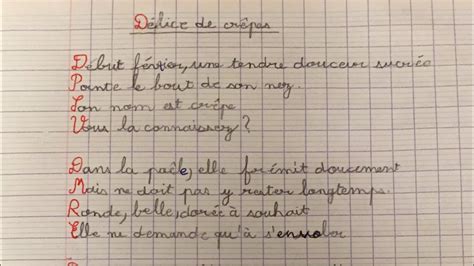 Délice de crêpes
Début février, une tendre douceur sucrée
Pointe le bout de son nez.
Son nom est crêpe
Vous la connaissez ?
Dans la paêle, elle frémit doucement
Mais ne doit pas y rester longtemps.
Ronde, belle, dorée à souhait
Elle ne demande qu'à s'envoler